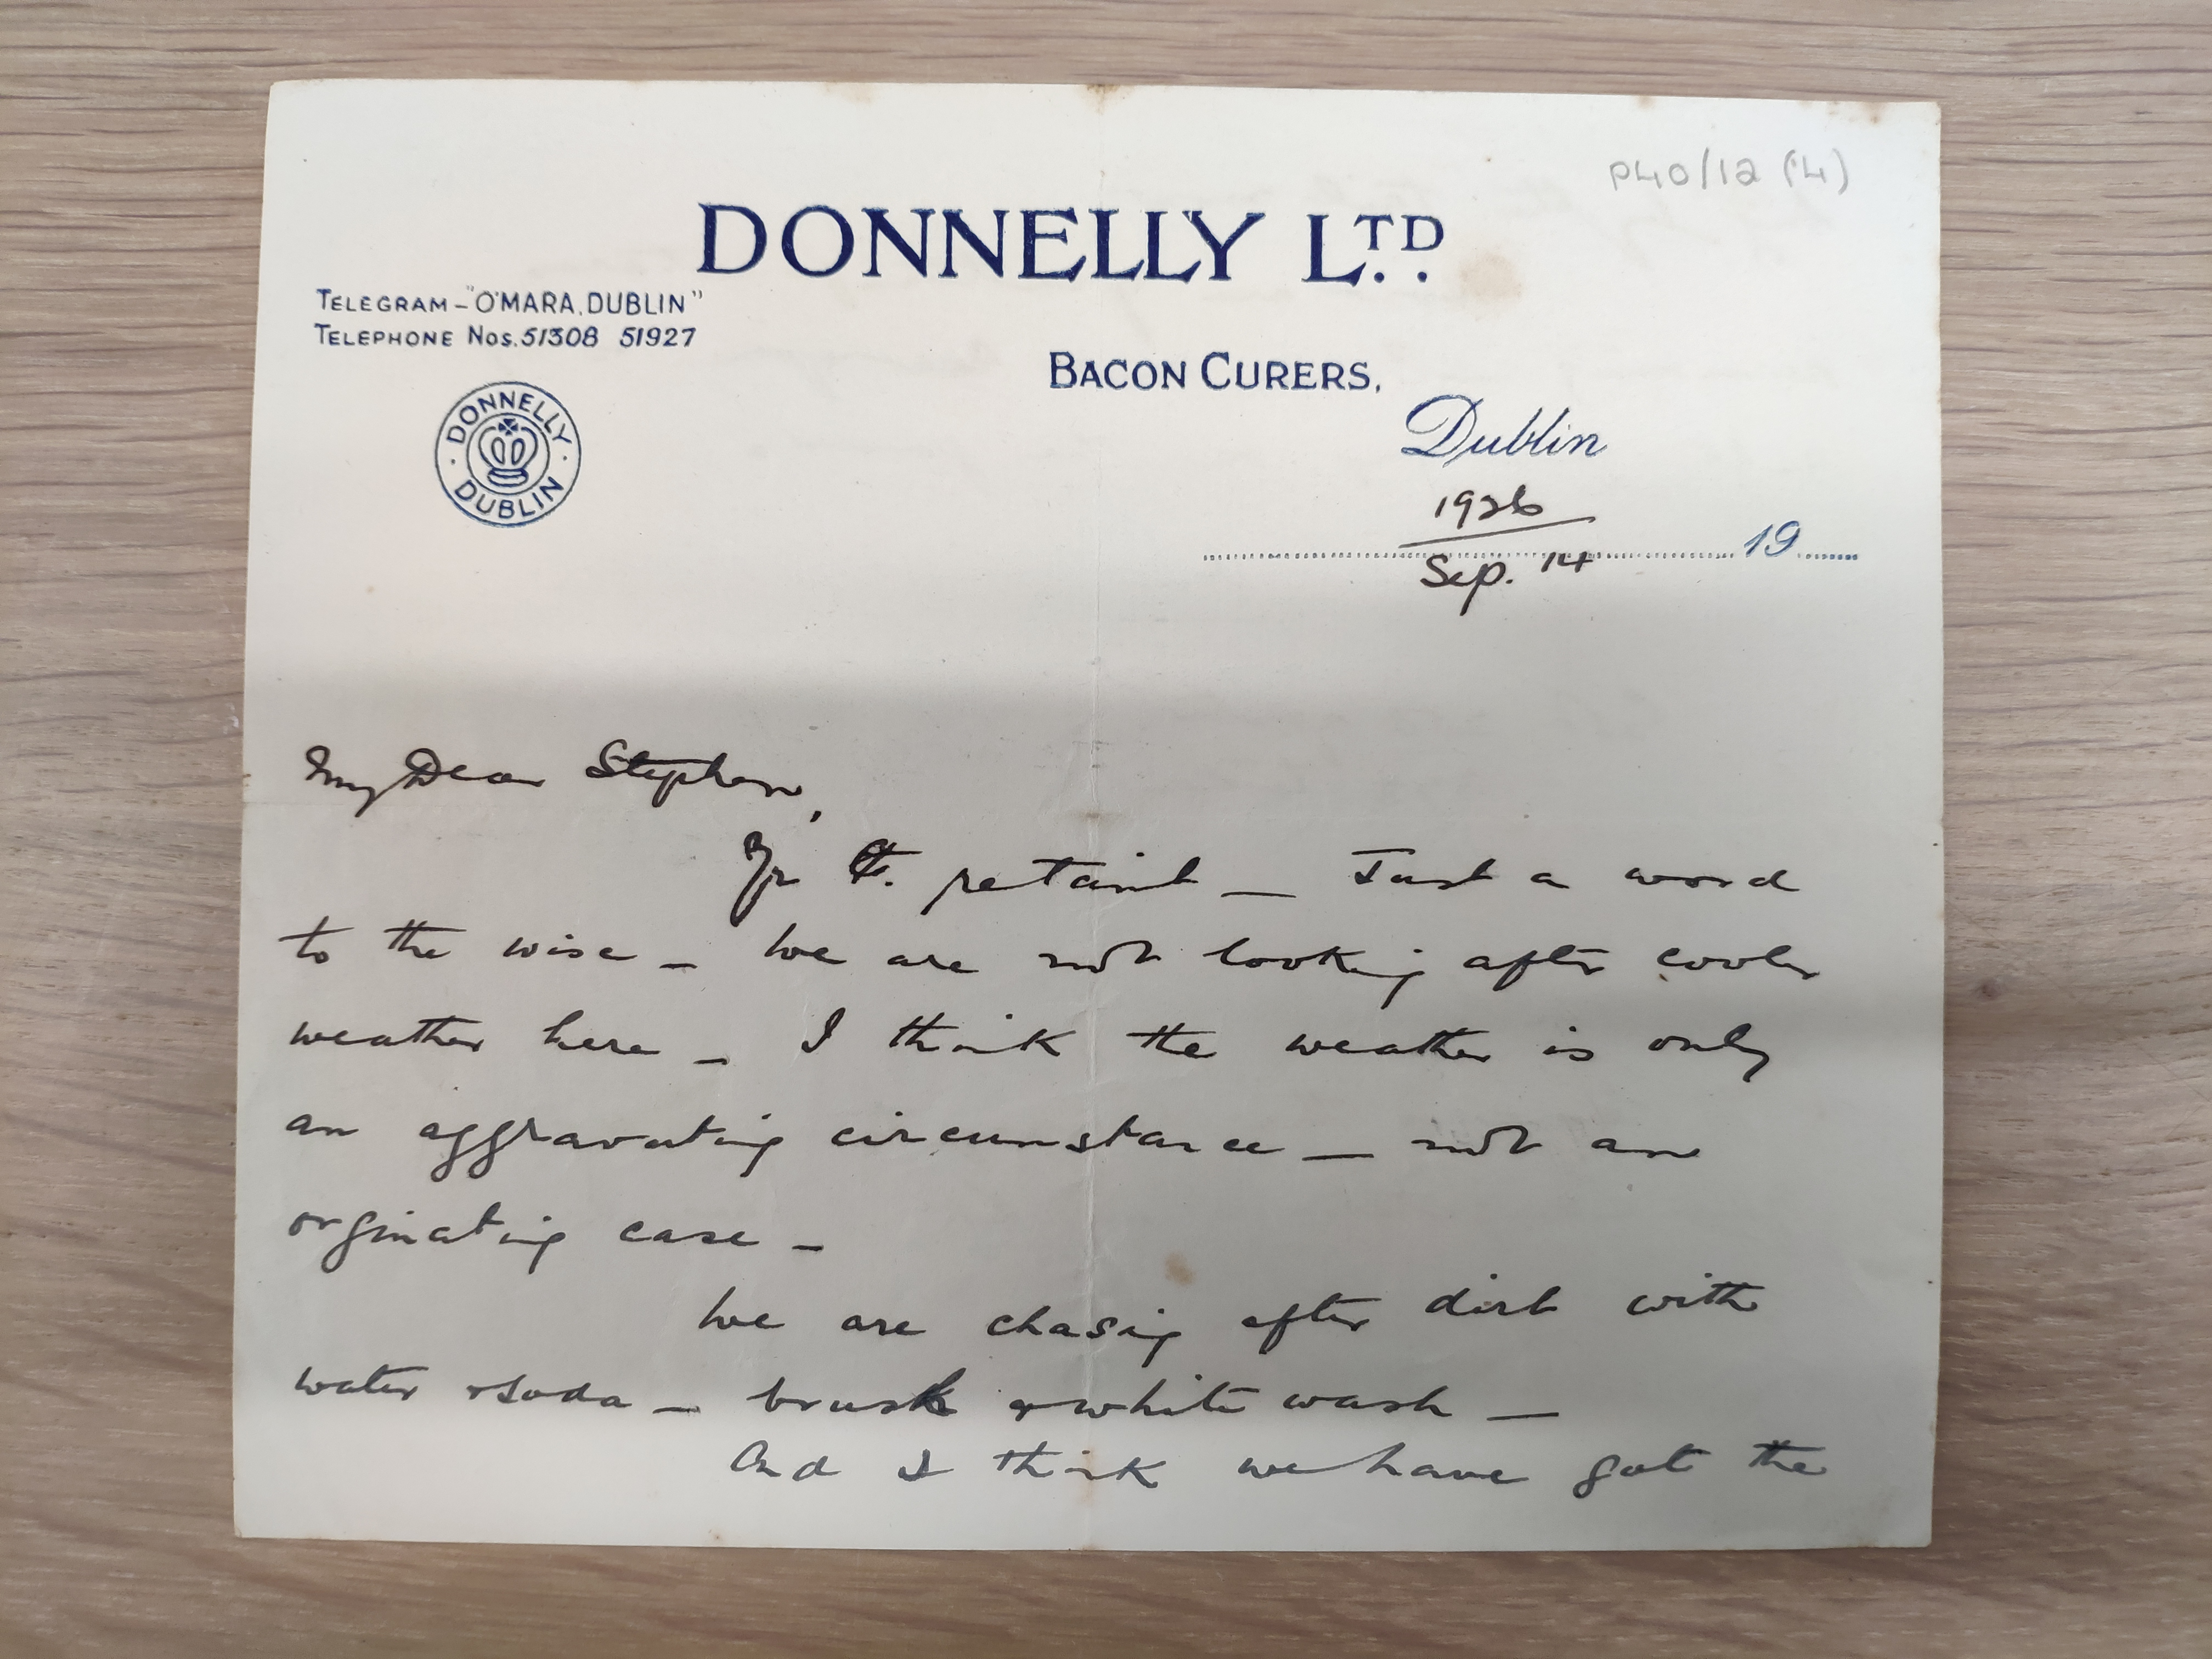 P40/12 (4)
DONNELLY LTD.
TELEGRAM - "O'MARA, DUBLIN"
TELEPHONE Nos. 51308 51927
BACON CURERS,
DONNELLY
DUBLIN
Dublin
1926
19
Sep. 14
My Dear Stephen,
Yr taint - Just a word
to the wise - We are not looking after cooler
weather here - I think the weather is only
an aggravating circumstance - not an
orginating case -
We are chasing after dirt with
water & soda - brush & white wash -
And I think we have got the